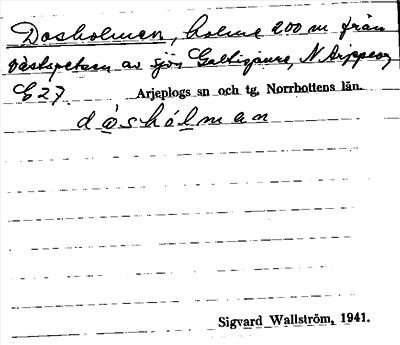 Dosholmen, holme 200 m från
västspetsen av sjön Galtisjaure, N. Arjeplog
E27 Arjeplogs sn och tg, Norrbottens län.
dòshólman
Sigvard Wallström, 1941.